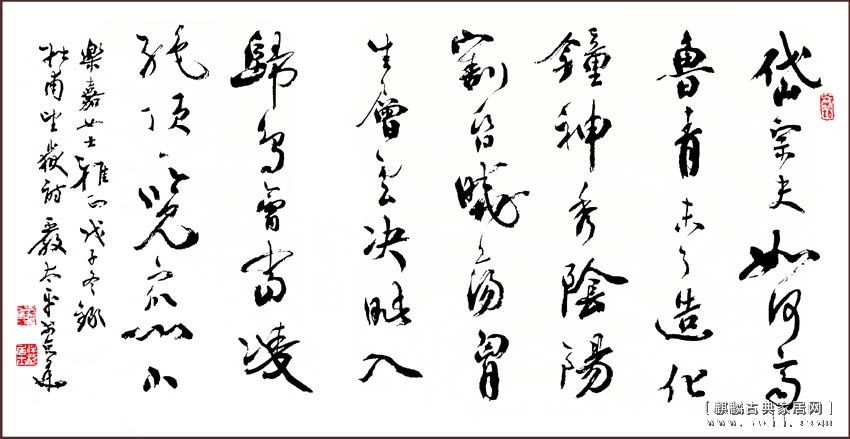 岱宗夫如何齊
魯青未了造化
鐘神秀陰陽
割昏曉蕩胷
生曾雲决眥入
歸鳥會當凌
絶頂一覽衆山小
樂嘉女士雅正戊子冬録
杜甫望嶽詩嚴太平書於京華
[麒麟古典家居网]